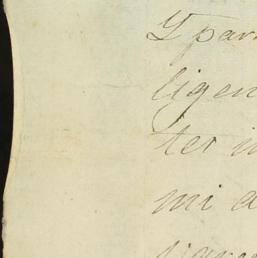 Y par
ligen
ter in
mi a